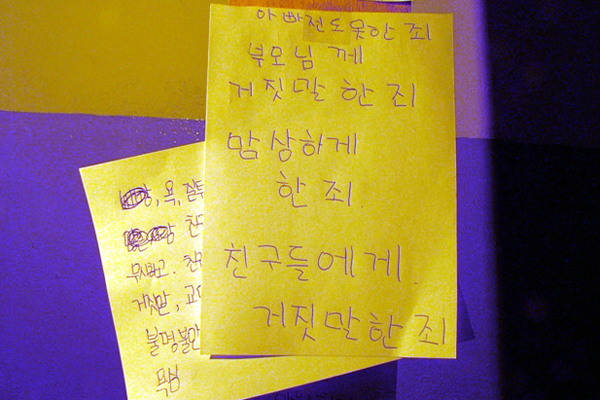 아빠전도못한 죄
부모님께
거짓말 한 죄
맘상하게
한 죄
친구들에게
거짓말한 죄
욕, 질투
친
무시하고. 친
거짓말, 교
불평불만
욕심